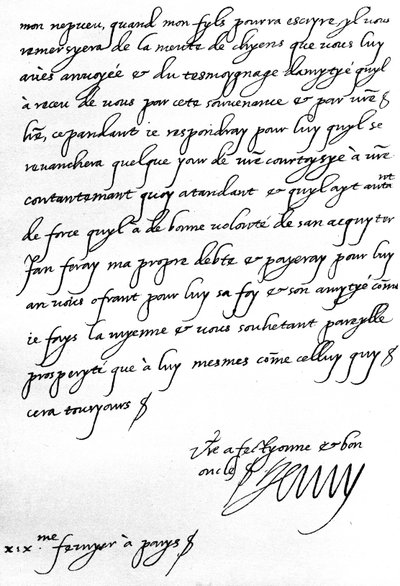 mon nepueu, quand mon fyls pourra escryre, yl vous
remersyera de la meute de chyens que vous luy
aues anuoyée & du tesmoygnage damytyé quyl
à receu de vous par cete souuenance & par vre
lre, cependant ie respondray pour luy quyl se
reuanchera quelque your de vre courtoysye à vre
contantemant quoy atandant & quyl ayt autant
de force quyl à de bonne volonté de san acquyter
Jan feray ma propre debte & payeray pour luy
an vous ofrant pour luy sa foy & son amytyé come
ie fays la myenne & vous souhetant pareylle
prosperyté que à luy mesmes come celluy quy
cera touryours
Vre afectyonne & bon
oncle Henry
xix.me feuryer à parys